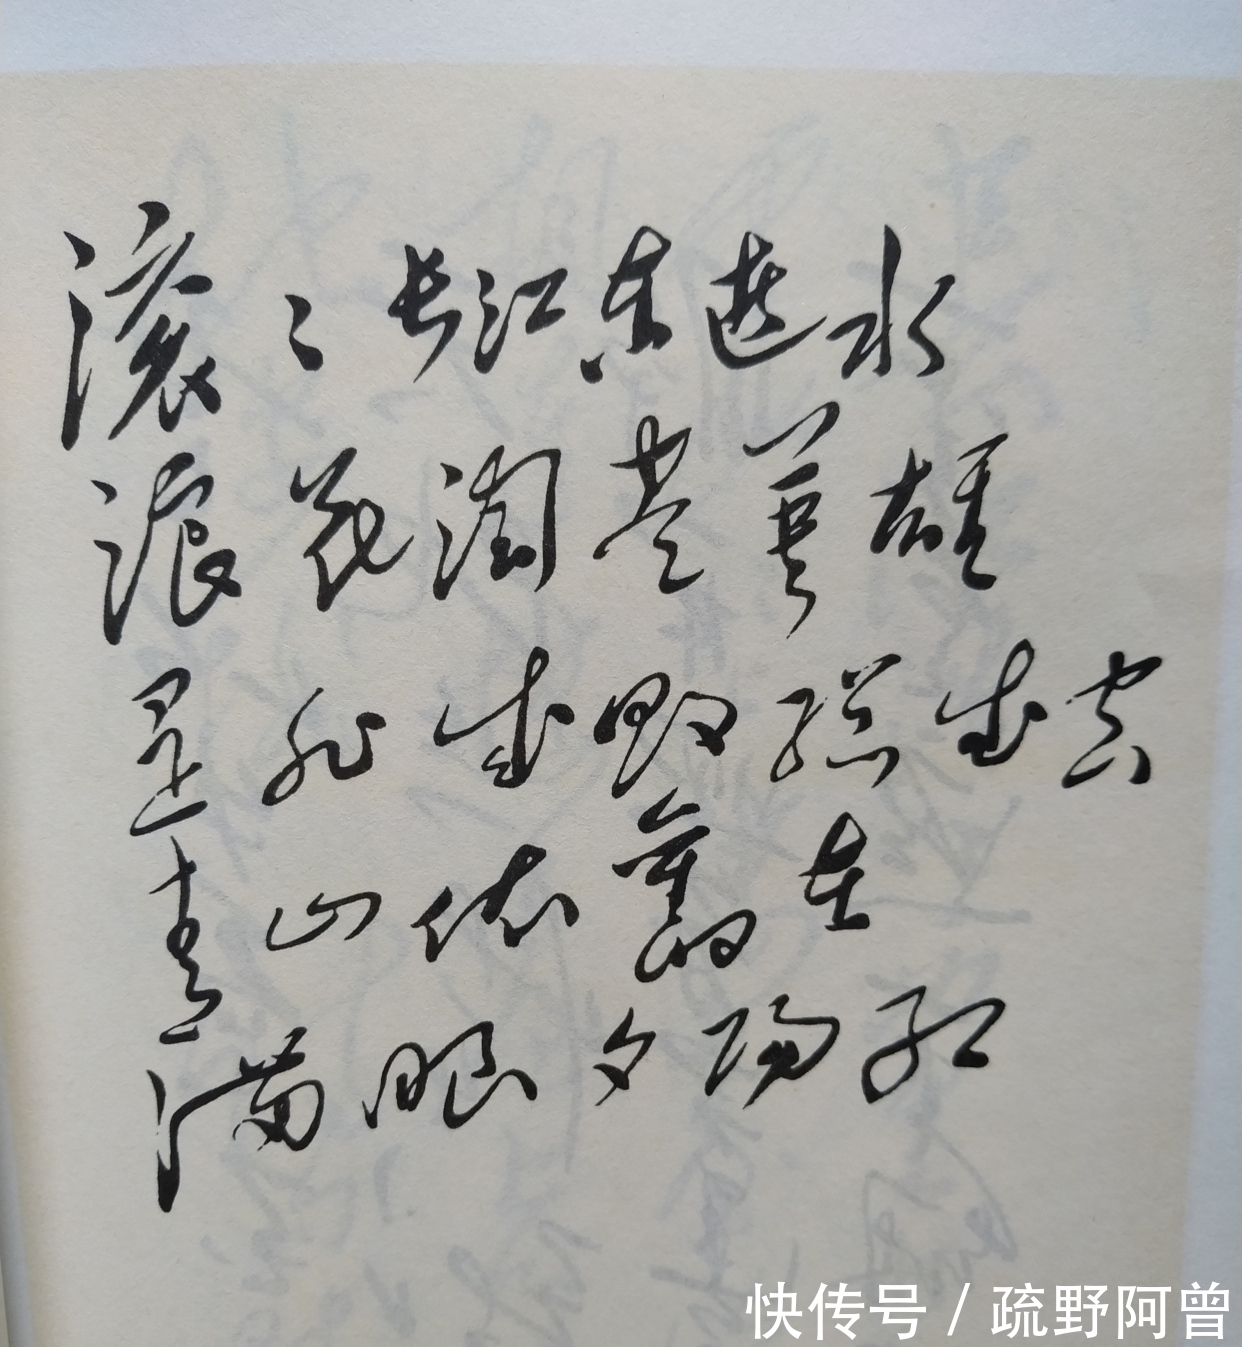 滚〻长江东逝水
浪花淘尽英雄
是非成败總成空
青山依舊在
满眼夕阳红
快传号 / 疏野阿曾